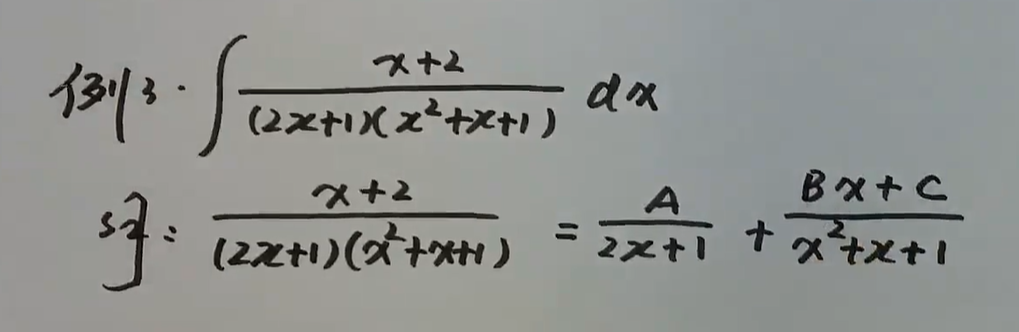 例3. ∫ (x+2)/((2x+1)(x²+x+1)) dx
解: (x+2)/((2x+1)(x²+x+1)) = A/(2x+1) + (Bx+C)/(x²+x+1)